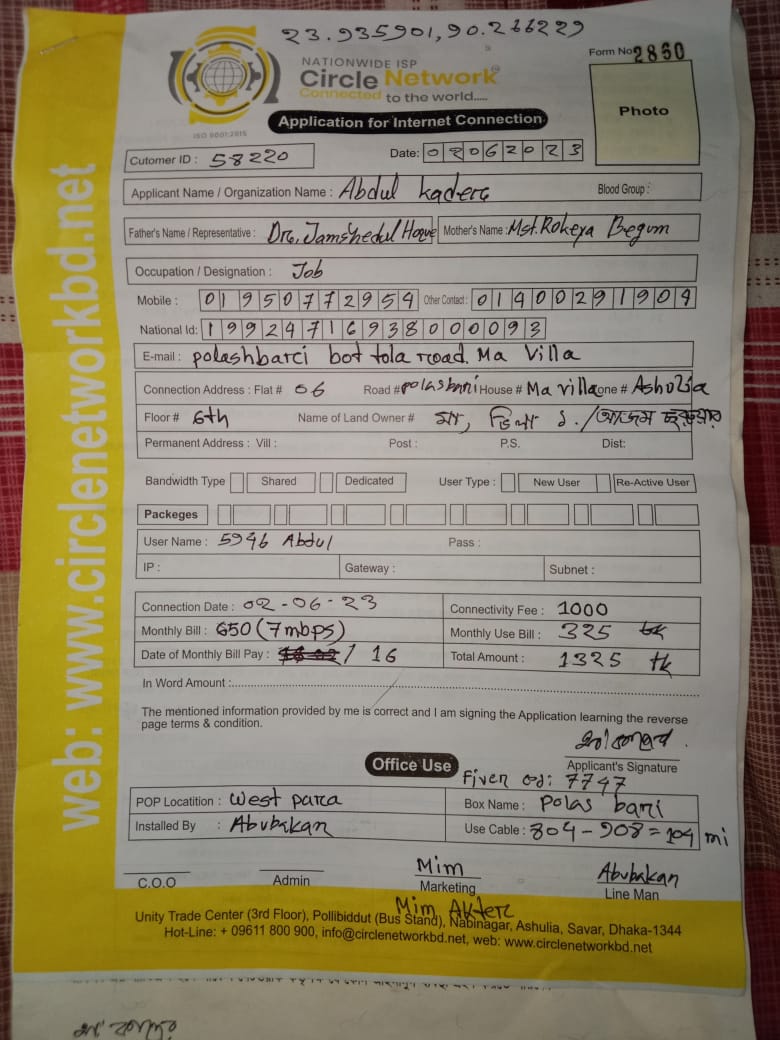 23.935901, 90.266229
NATIONWIDE ISP
Circle Network
Connected to the world.....
ISO 9001:2015
Form No 2860
Photo
Application for Internet Connection
Cutomer ID : 58220
Date: 02062023
Applicant Name / Organization Name : Abdul kaderc
Blood Group :
Father's Name / Representative : Drc. Jamshedul Hoque
Mother's Name : Mst. Rokeya Begum
Occupation / Designation : Job
Mobile : 01950772954 Other Contact : 01400291904
National Id: 19924716938000093
E-mail : polashbarci bot tola rcoad. Ma Villa
Connection Address : Flat # 06 Road # polasbari House # Ma villa one # Asholia
Floor # 6th Name of Land Owner # মা, ভিলা ১. /আজম
Permanent Address : Vill : Post : P.S. Dist:
Bandwidth Type Shared Dedicated User Type : New User Re-Active User
Packeges
User Name : 5946 Abdul Pass :
IP : Gateway : Subnet :
Connection Date : 02-06-23 Connectivity Fee : 1000
Monthly Bill : 650 (7mbps) Monthly Use Bill : 325 tk
Date of Monthly Bill Pay : / 16 Total Amount : 1325 tk
In Word Amount :
The mentioned information provided by me is correct and I am signing the Application learning the reverse
page terms & condition.
Applicant's Signature
Office Use
Fiver od: 7747
POP Locatition : West parca Box Name : Polas bari
Installed By : Abubakan Use Cable : 804-908=104 mi
C.O.O
Admin
Mim
Marketing
Mim Akterc
Abubakan
Line Man
Unity Trade Center (3rd Floor), Pollibiddut (Bus Stand), Nabinagar, Ashulia, Savar, Dhaka-1344
Hot-Line: + 09611 800 900, info@circlenetworkbd.net, web: www.circlenetworkbd.net
web: www.circlenetworkbd.net